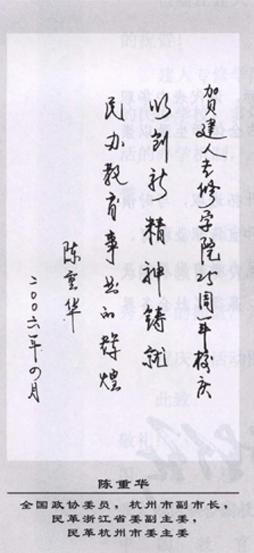 贺建人专修学院25周年校庆
以创新精神铸就
民办教育事业的辉煌
陈重华
二〇〇六年四月
陈重华
全国政协委员，杭州市副市长，
民革浙江省委副主委，
民革杭州市委主委